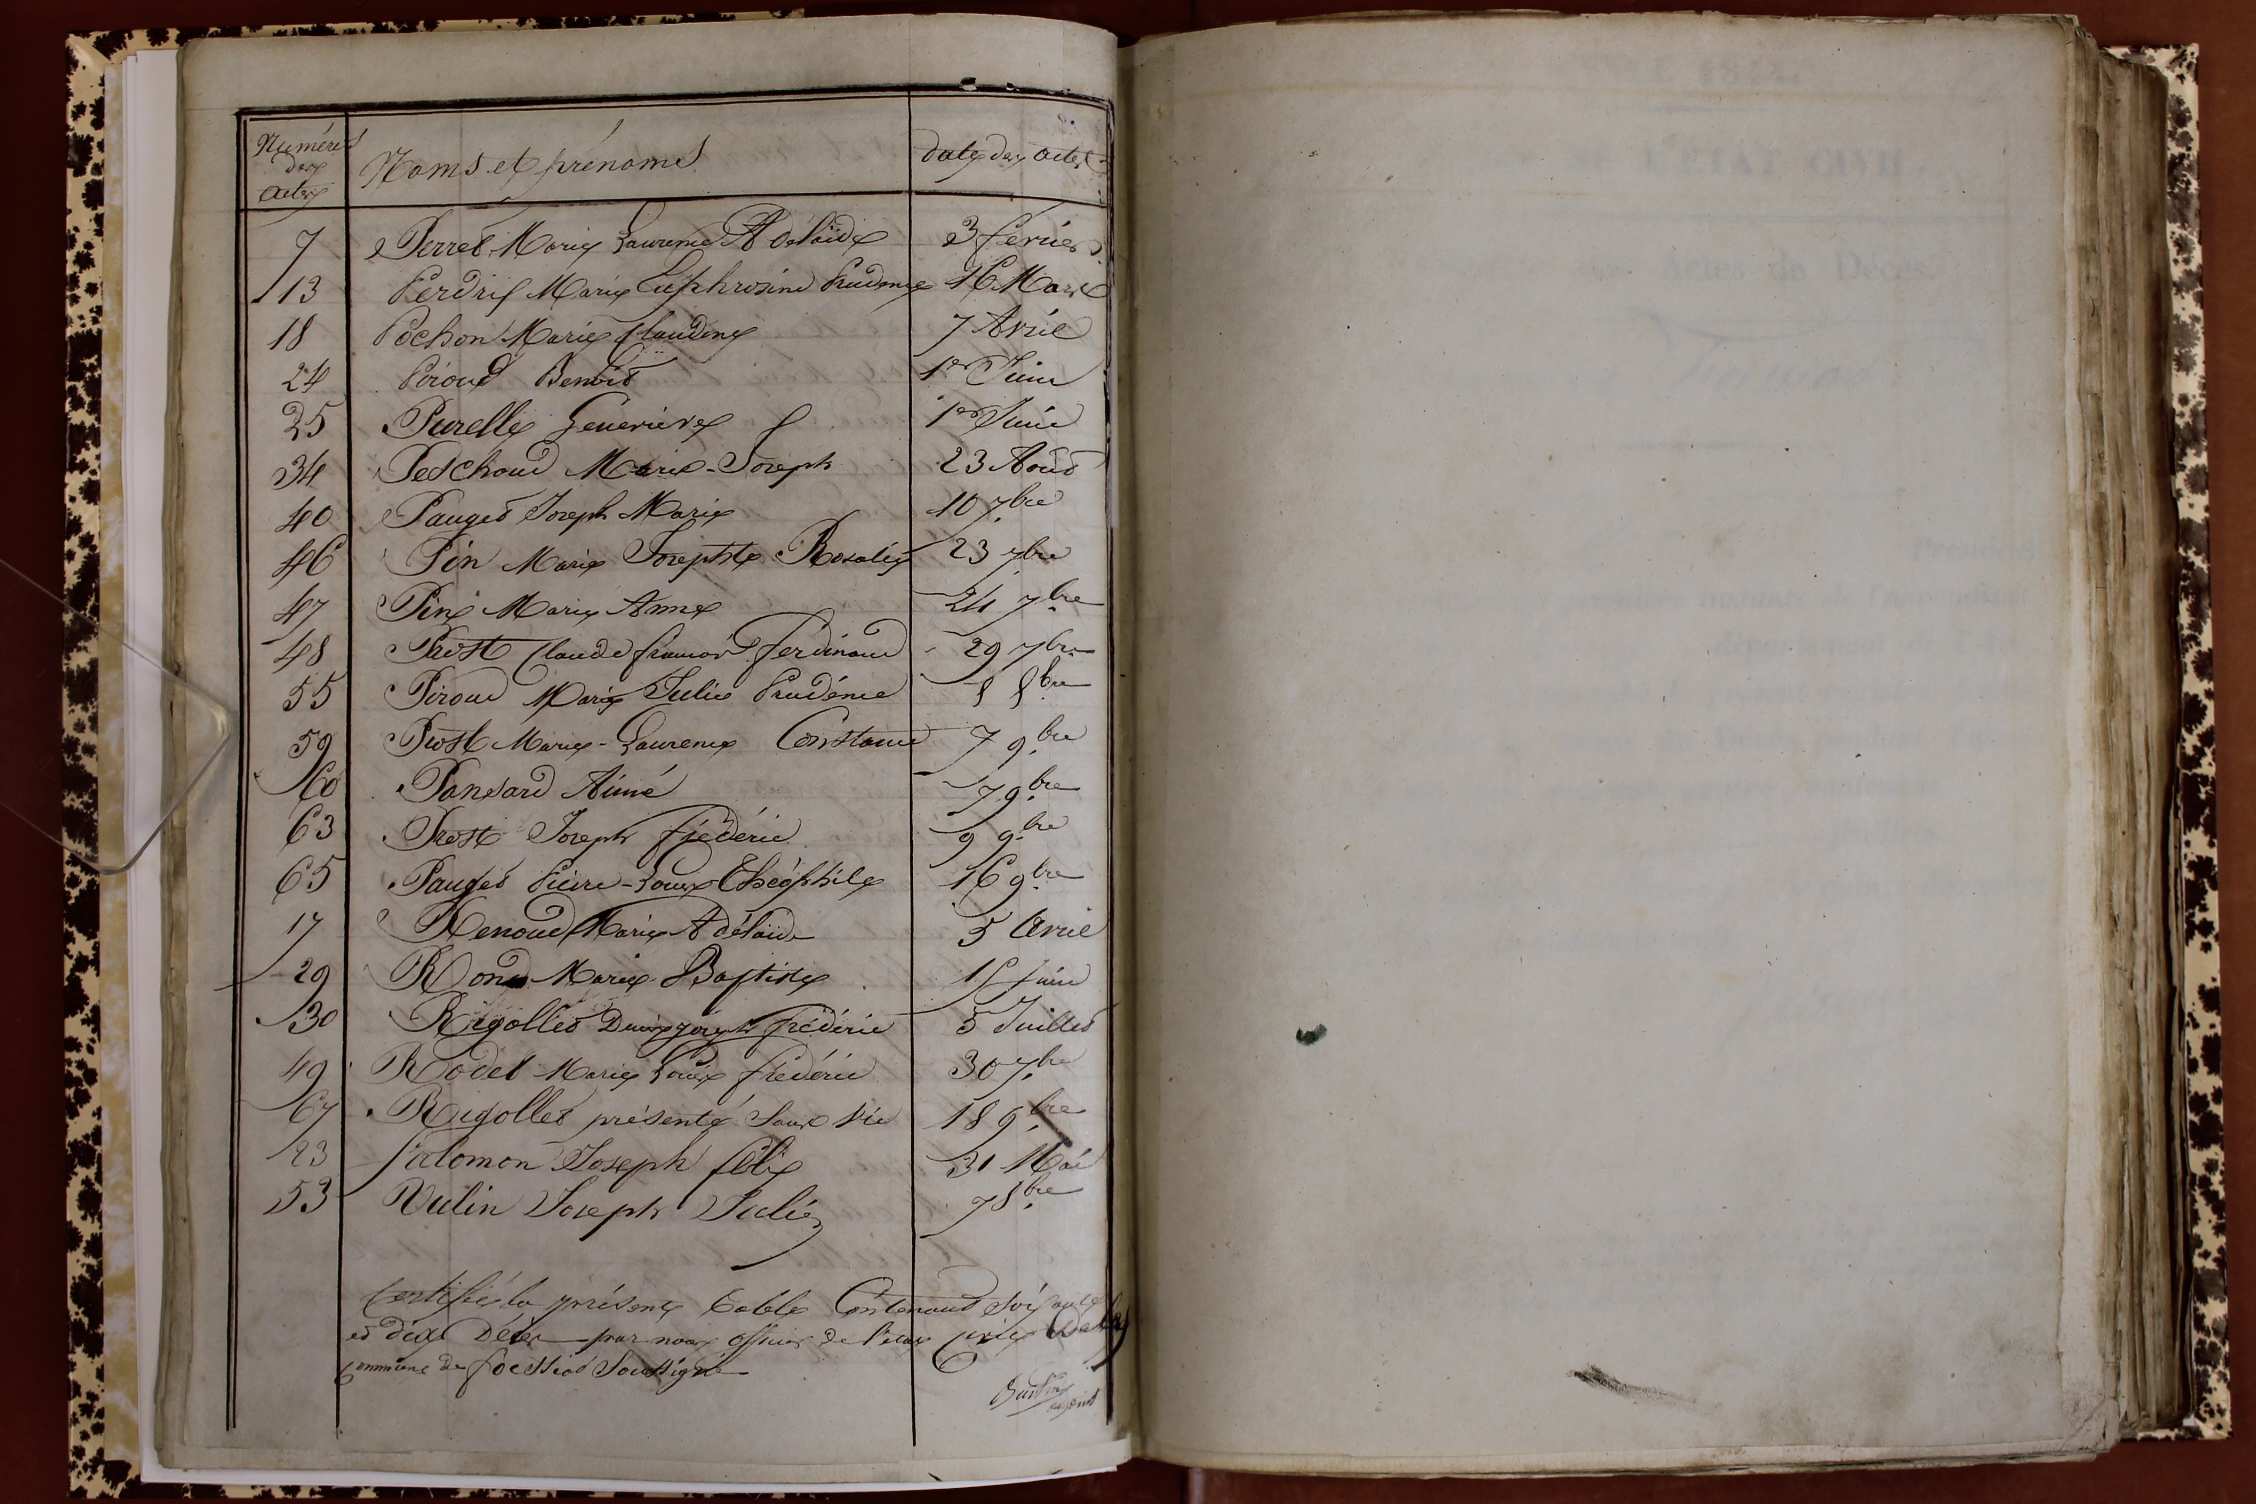 Numéros des actes Noms et prénoms date des actes
7 Perret Marie Laurence Adélaïde 3 février
13 Perdrix Marie Euphrosine Prudence 16 Mars
18 Pochon Marie Claudine 7 Avril
24 Piroud Benoit 1er Juin
25 Purelle Géneviève 1er Juin
34 Peschoud Marie-Joseph 23 Août
40 Pauget Joseph Marie 10 7bre
46 Pin Marie Josephte Rosalie 23 7bre
47 Pin Marie Anne 24 7bre
48 Prost Claude françois ferdinand 29 7bre
55 Piroud Marie Julie Prudence 8 8bre
59 Prost Marie-Laurence Constance 7 9bre
60 Pansard Aimé 7 9bre
63 Prost Joseph frédéric 9 9bre
65 Pauget Pierre-Louis Théophile 16 9bre
17 Renoud Marie Adélaïde 5 Avril
29 Rond Marie Baptiste Juin
30 Rigollet Denis joseph frédéric 5 Juillet
49 Rodet Marie Louis frédéric 30 7bre
67 Rigollet présenté Sans Vie 18 9bre
23 Salomon Joseph félix 31 Mai
53 Vulin Joseph Julien 7 8bre
Certifié la présente table Contenant Soixante
et dix Décès par nous officier de l'état civil de la
Commune de foissiat Soussigné